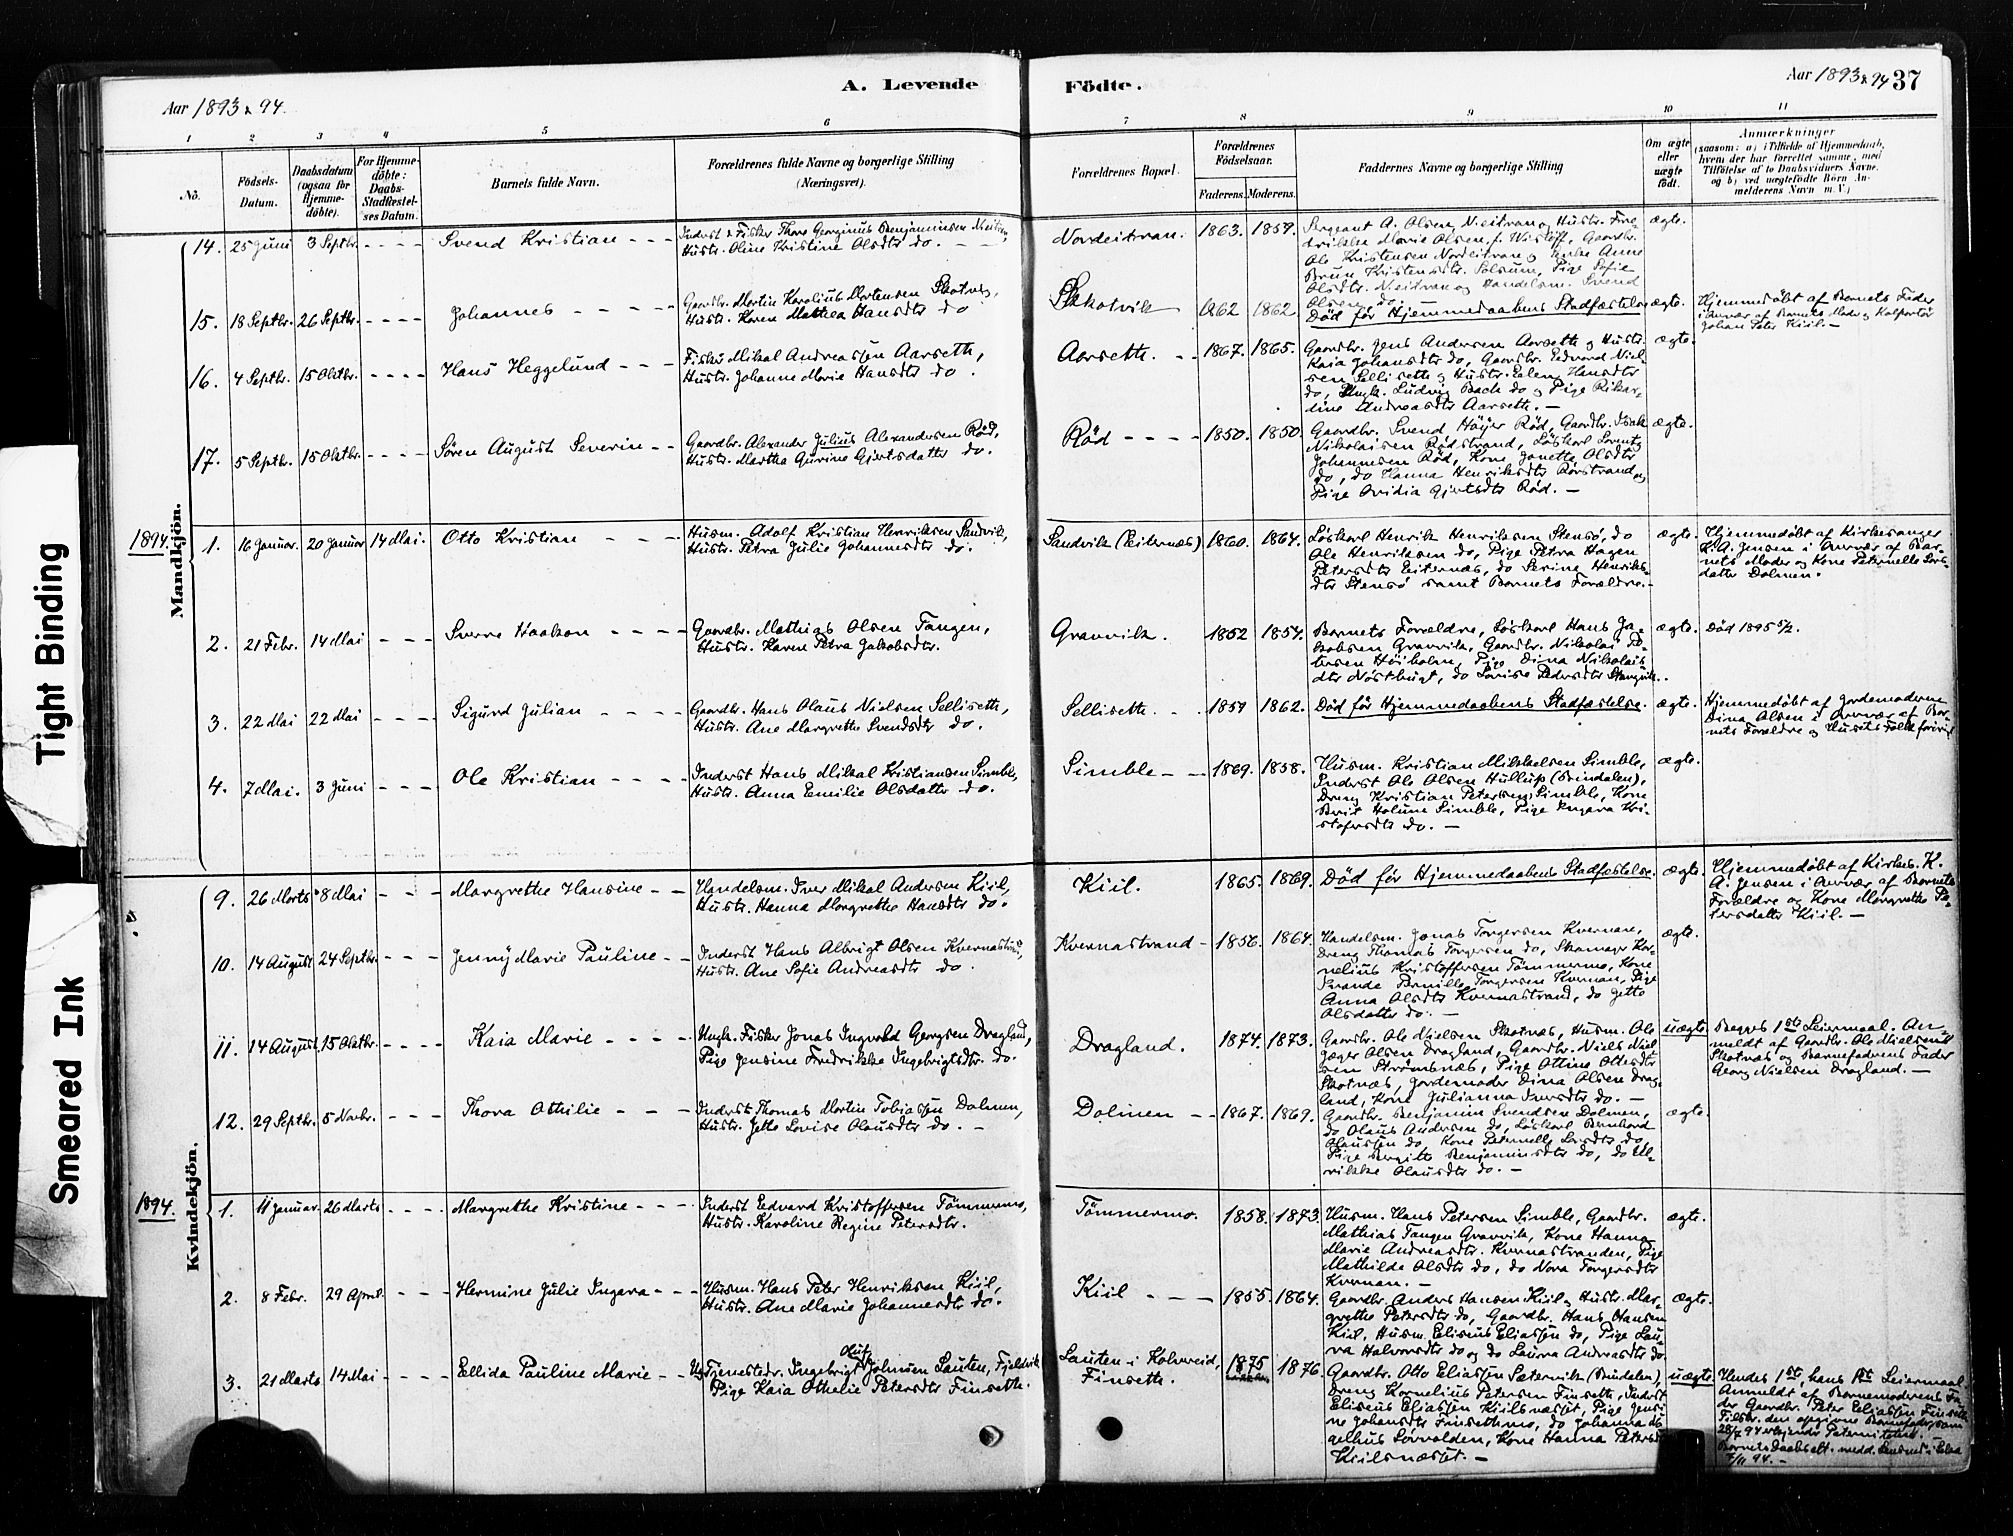 Aar 1893 & 94.
A. Levende
Födte.
Aar 1893 & 94
37
1 2 3 4 5 6 7 8 9 10 11
No.
Födsels-Datum.
Daabsdatum (ogsaa for Hjemme-döbte).
For Hjemme-döbte: Daabs-Stadfæstel-ses Datum.
Barnets fulde Navn.
Forældrenes fulde Navne og borgerlige Stilling (Næringsvei).
Forældrenes Bopæl.
Forældrenes Födselsaar.
Faderens. Moderens.
Faddernes Navne og borgerlige Stilling
Om ægte eller uægte födt.
Anmærkninger
(saasom: a) i Tilfælde af Hjemmedaab, hvem der har forrettet samme, med Tilföielse af to Daabsvidners Navne, og b) ved uægtefödte Börn Anmelderens Navn m. V.)
Mandkjön.
14. 25 Juni 3 Septbr. - - - - Svend Kristian - - -
Inderst & Fisker Thore Georginus Benjaminsen
Hustr. Oline Kristine Olsdtr do. - -
Nordeitran. 1863. 1857.
Sergeant A. Olsen, Neitran og Hustr. Fre-
drikke Marie Olsen, f. Gaardbr.
Ole Kristensen Nordeitran og Enke Anne
Brun Kristensdtr. Solsum, Pige Sofie
Olsdtr. Neitran og Handelsm. Svend
Olsen do. —
ægte.
15. 18 Septbr. 26 Septbr. - - - - Johannes - - - - -
Gaardbr. Martin Karolius Mortensen Skotvig,
Hustr. Karen Mathea Hansdtr do
Skotvik 1862 1862.
Død før Hjemmedaabens Stadfæstelse
ægte.
Hjemmedøbt af Barnets Fader
i Overvær af Barnets Moder og Kolportör
Johan Peter Kiil. —
16. 4 Septbr. 15 Oktbr. - - - - Hans Heggelund - - -
Fisker Mikal Andreassen Aarseth,
Hustr. Johanne Marie Hansdtr do.
Aarseth. - - 1867. 1865.
Gaardbr. Jens Andersen Aarseth og Hustr.
Kaia Johansdtr do, Gaardbr. Edvard Niel-
sen Selliseth og Hustr. Elen Hansdtr
do, Ungk. Ludvig Bach do og Pige Rikar-
dine Andreasdtr Aarseth. —
ægte.
17. 5 Septbr. 15 Oktbr. - - - - Søren August Severin - -
Gaardbr. Alexander Julius Alexandersen Rød,
Hustr. Martha Gurine Gjertsdatter do.
Rød - - - - 1850. 1850.
Gaardbr. Svend Höyer Rød, Gaardbr. Isak
Nikolaisen Rødstrand, Løskarl Lorentz
Johannesen Rød, Kone Janetta Olsdtr
do, do Hanna Henriksdtr Rørstrand og
Pige Ovidia Gjertsdtr Rød. —
ægte.
1894.
1. 16 Januar. 20 Januar 14 Mai. Otto Kristian - - -
Husm. Adolf Kristian Henriksen Sandvik,
Hustr. Petra Julie Johannesdtr do.
Sandvik (Eiternæs) 1860. 1864.
Løskarl Henrik Henriksen Stensö, do
Ole Henriksen do, Pige Petra Hagen
Petersdtr Eiternæs, do Serine Henriks-
dtr Stensö samt Barnets Forældre. -
ægte.
Hjemmedøbt af Kirkesanger
K. A. Jensen i Overvær af Bar-
nets Moder og Kone Peternelle Lors-
datter Dolmen.
2. 21 Febr. 14 Mai - - - Sverre Haakon - - - -
Gaardbr. Mathias Olsen Tangen,
Hustr. Karen Petra Jakobsdtr.
Gravvik. 1852 1854.
Barnets Forældre, Løskarl Hans Ja-
kobsen Gravvik, Gaardbr. Nikolai Pe-
tersen Höiholm, Pige Dina Nikolais
dtr Nøstbugt, do Lovise Pedersdtr
ægte. Død 1895
3. 22 Mai 22 Mai - - - Sigurd Julian - - - -
Gaardbr. Hans Olaus Nielsen Selliseth,
Hustr. Ane Margrethe Svendsdtr do.
Selliseth. - - 1857 1862.
Død før Hjemmedaabens Stadfæstelse.
ægte.
Hjemmedøbt af Jordemoderen
Dina Olsen i Overvær af Bar-
nets Forældre og Husets Folk forövrigt
4. 7 Mai. 3 Juni - - - Ole Kristian - - - -
Inderst Hans Mikal Kristiansen Simble,
Hustr. Anna Emilie Olsdatter do.
Simble - - 1869. 1858.
Husm. Kristian Mikkelsen Simble,
Inderst Ole Olsen Hullup (Brindalen),
Dreng Kristian Petersen Simble, Kone
Berit Holune Simble, Pige Ingara Kri-
stofersdtr do. —
ægte.
Kvindekjön.
9. 26 Marts 8 Mai - - - Margrethe Hansine - -
Handelsm. Iver Mikal Andersen Kiil,
Hustr. Hanna Margrethe Hansdtr do.
Kiil. 1865. 1869.
Død før Hjemmedaabens Stadfæstelse.
ægte.
Hjemmedøbt af Kirkes. K.
A. Jensen i Overvær af Barnets
Forældre og Kone Margrethe Pe-
tersdatter Kiil. —
10. 14 August 24 Septbr. - - - Jenny Marie Pauline - -
Inderst Hans Albrigt Olsen Kvernastrand,
Hustr. Ane Sofie Andreasdtr do.
Kvernastrand - 1856. 1864.
Handelsm. Jonas Torgersen Kvernan,
Dreng Thomas Torgersen do, Skomager Kor-
nelius Kristoffersen Tömmermo, Kone
Pernille Torgersen Kvernan, Pige
Anna Olsdtr Kvernastrand, do Jette
Olsdatter do. —
ægte.
11. 14 August. 15 Oktbr. - - - - Kaia Marie - - - -
Ungk. Fisker Jonas Ingvald Georgsen Dragland,
Pige Jensine Fredrikke Ingebrigtsdtr. do.
Dragland. 1874. 1873.
Gaardbr. Ole Nielsen Skotnæs, Husm. Ole
Jæger Olsen Dragland, Gaardbr. Niels Niel
sen Strömsnæs, Pige Ottine Ottesdtr
Skotnæs, Jordemoder Dina Olsen Drag-
land, Kone Julianna Iversdtr do. —
uægte
Begges 1ste Leiermaal. An-
meldt af Gaardbr. Ole Nielsen
Skotnæs og Barnefaderens Fader
Georg Nielsen Dragland. —
12. 29 Septbr. 5 Novbr. - - - Thora Othilie - - -
Inderst Thomas Martin Tobiassen Dolmen,
Hustr. Jette Lovise Olausdtr do. —
Dolmen - - 1867. 1869.
Gaardbr. Benjamin Svendsen Dolmen,
do Olaus Andersen do, Løskarl Bernhard
Olaussen do, Kone Peternelle Larsdtr do,
Pige Bergitte Benjaminsdtr do, do Ul-
rikke Olausdtr do. —
ægte.
1894.
1. 11 Januar. 26 Marts - - - - Margrethe Kristine - - -
Inderst Edvard Kristoffersen Tömmermo,
Hustr. Karoline Regine Petersdtr.
Tömmermo. 1858. 1873.
Husm. Hans Petersen Simble, Gaardbr.
Mathias Tangen Gravvik, Kone Hanna
Marie Andreasdtr. Kvernastranden, Pige
Mathilde Olsdtr do, do Nora Torgersdtr
Kvernan. —
ægte.
2. 8 Febr. 29 April. - - - Hermine Julie Ingara - - -
Husm. Hans Peter Henriksen Kiil,
Hustr. Ane Marie Johannesdtr do.
Kiil - - - 1855. 1864.
Gaardbr. Anders Hansen Kiil og Hustr. Mar-
grethe Petersdtr do, Gaardbr. Hans Hansen
Kiil, Husm. Eliseus Eliassen do, Pige Lau-
ra Halvorsdtr do og do Laura Andreasdtr do
ægte.
3. 21 Marts 14 Mai - - - - Ellida Pauline Marie - -
Tjenestedr. Ingebrigt Johnsen Lauten, Fjeldvik
Pige Kaia Othelie Petersdtr Finseth.
Lauten i Kolvereid,
Finseth. 1875 1876.
Gaardbr. Otto Eliassen Sætervik (Brindalen),
Dreng Kornelius Petersen Finseth, Inderst
Eliseus Eliassen Kiilsnæsset, Pige Jensi-
ne Johansdtr Finsethmo, do Johanna
Sörvolden, Kone Hanna Petersd
Kiilsnæsset. —
uægte
Hendes 1ste, hans 1ste Leiermaal.
Anmeldt af Barnemoderens Fa-
der Gaardbr. Peter Eliassen Finseth.
den opgivne Barnefader
28/7 94 vedgaar Paterniteten.
11 94. —
Tight Binding
Smeared Ink